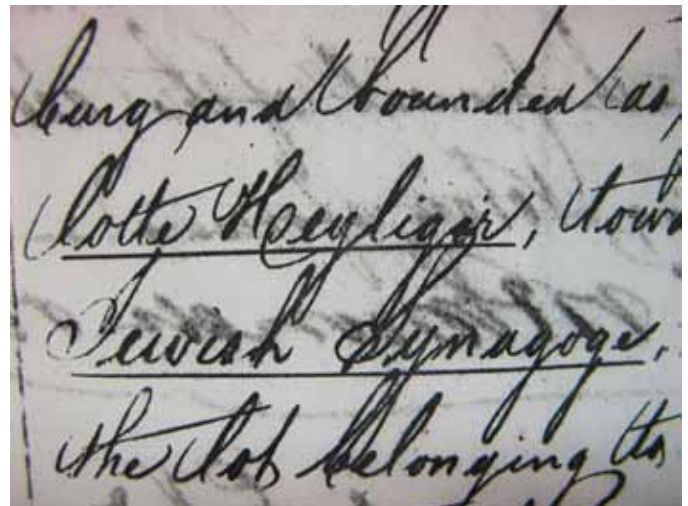 burg and bounded as,
lotte Heyliger, towa
Jewish Synagoge,
the lot belonging to